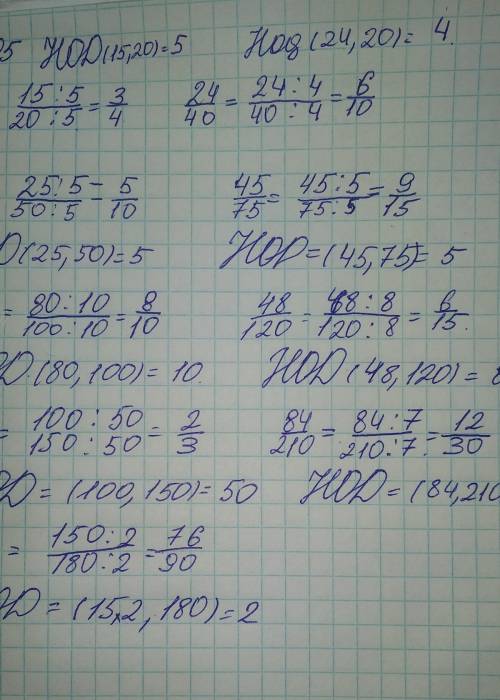 25 НОD (15,20)=5 Нод (24,20)= 4.
15:5/20:5 = 3/4 24/40 = 24:4/40:4 = 6/10
25:5/50:5 = 5/10 45/75 = 45:5/75:5 = 9/15
D (25,50)=5 НОD = (45,75)= 5
= 80:10/100:10 = 8/10 48/120 = 48:8/120:8 = 6/15.
OD (80,100)= 10. НОD (48,120) = 8
= 100:50/150:50 = 2/3 84/210 = 84:7/210:7 = 12/30
OD = (100,150)= 50 НОD = (84,210
= 150:2/180:2 = 76/90
OD = (15,2, 180)= 2